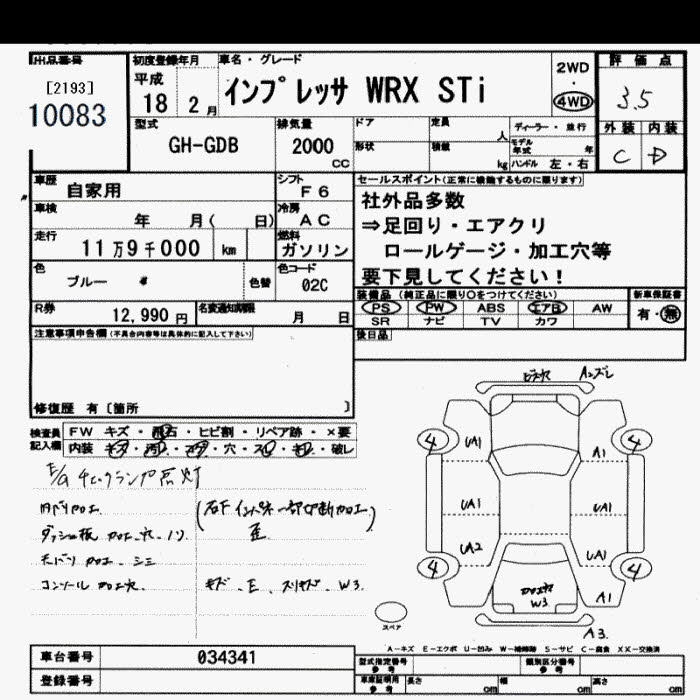 出品番号
[2193]
10083
初度登録年月
平成
18 2 月
車名・グレード
インプレッサ WRX STi
2WD
・
4WD
評価点
3.5
外装 内装
C D
型式
GH-GDB
排気量
2000
CC
ドア
定員
人
形状
積載
kg
ディーラー・並行
モデル年式 年
ハンドル 左・右
車歴
自家用
シフト
F6
車検
年 月( 日)
冷房
AC
走行
11万9千000 km
燃料
ガソリン
色
ブルー
色替
色コード
02C
R券
12,990 円
名変通知期限
月 日
セールスポイント(正常に機能するものに限ります)
社外品多数
⇒足回り・エアクリ
ロールゲージ・加工穴等
要下見してください!
装備品 (純正品に限り○をつけてください)
PS PW ABS エアB AW
SR ナビ TV カワ
新車保証書
有・無
後日品
注意事項申告欄(不具合内容等は具体的に記入して下さい)
修復歴 有〔箇所 〕
検査員記入欄
FW キズ・飛石・ヒビ割・リペア跡・×要
内装 キズ・汚レ・コゲ・穴・スレ・キレ・破レ
E/Gチェックランプ点灯
内バリ加工
ダッシュ板 加工穴・ノリ
天バリ 加工・シミ
コンソール 加工穴
キズ・E、スリキズ・W3
A
4 4
UA1 A1
UA1 UA1
UA2 UA1
4 4
加工穴
W3
A1
A3
スペア
A-キズ E-エクボ U-凹み W-補修跡 S-サビ C-腐食 XX-交換済
車台番号 034341
登録番号
型式指定番号
参考
類別区分番号
参考
車庫証明用
参考
長さ cm
幅 cm
高さ cm